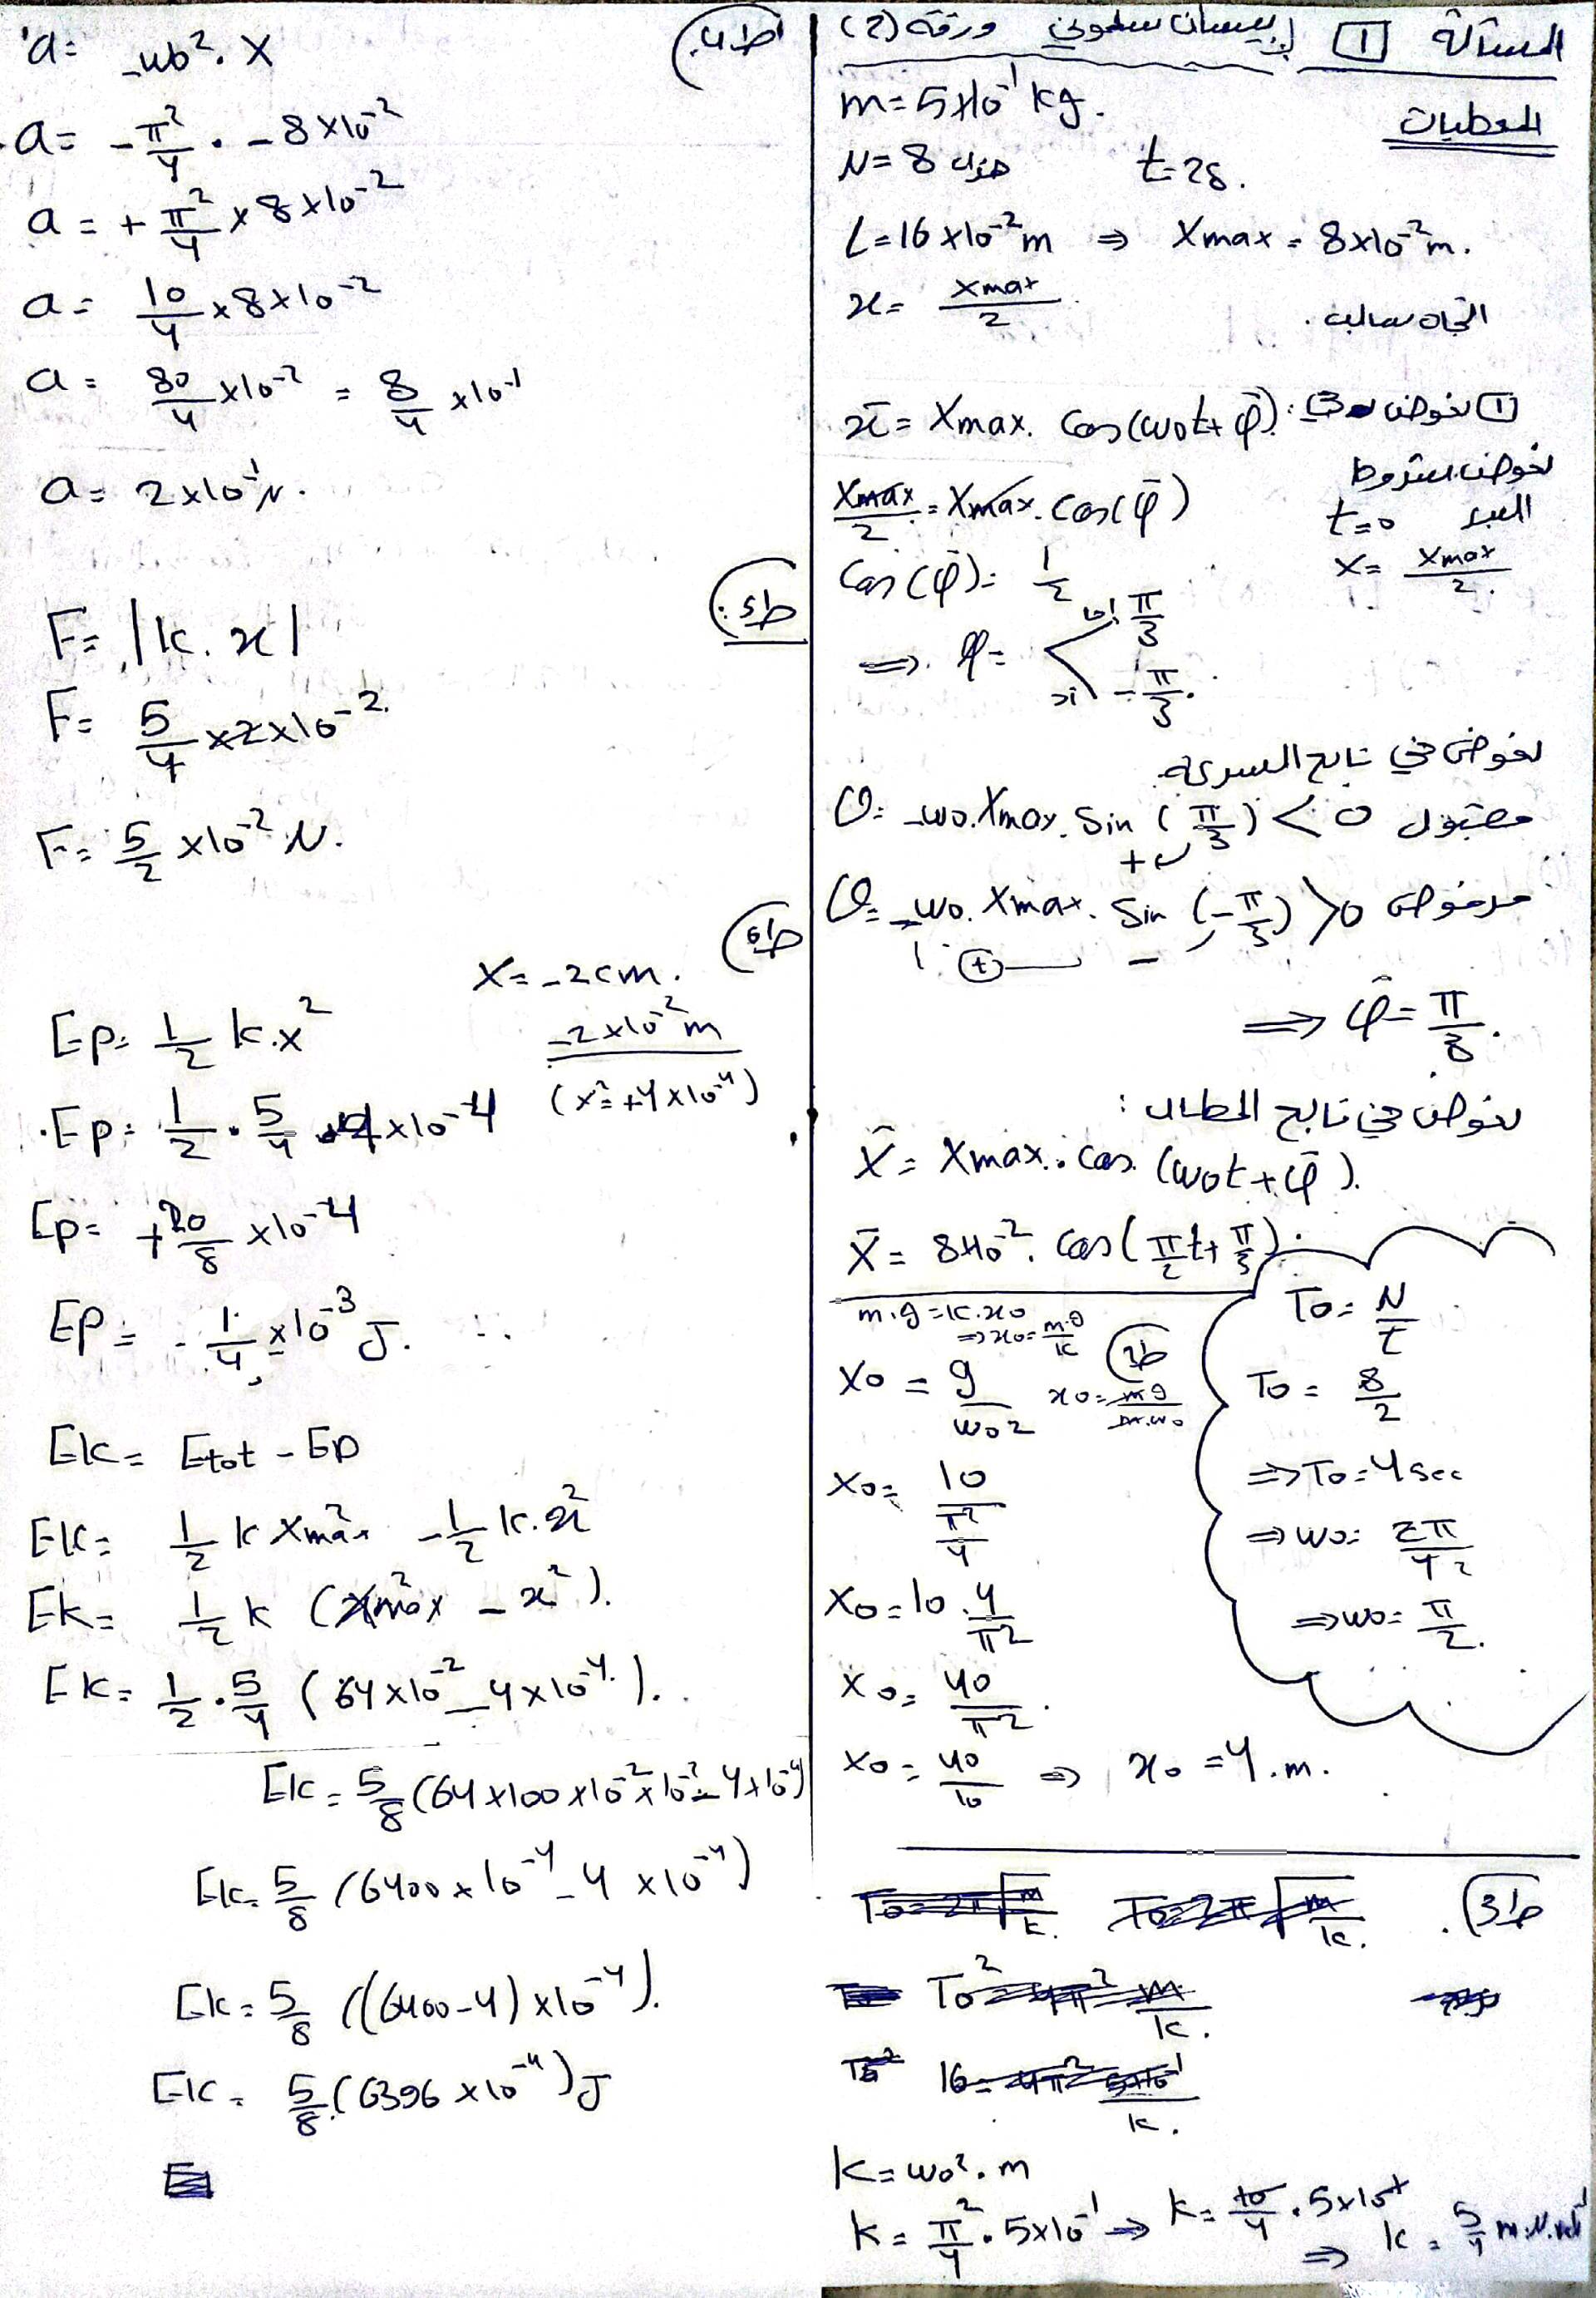 المسألة 1 بيسان سلموني ورقة (2)
المعطيات
m = 5×10⁻¹ kg.
N = 8 هزة t = 2s.
L = 16×10⁻² m ⇒ Xmax = 8×10⁻² m.
x = Xmax/2 اتجاه سالب.
1 نعوض في:
x̄ = Xmax. cos(ω0t + φ̄)
نعوض شروط البدء
t = 0
x = Xmax/2.
Xmax/2 = Xmax. cos(φ̄)
cos(φ̄) = 1/2
⇒ φ = إما π/3
أو -π/3.
نعوض في تابع السرعة
v = -ω0. Xmax. sin(π/3) < 0 مقبول
+
v = -ω0. Xmax. sin(-π/3) > 0 مرفوض
+ -
⇒ φ̄ = π/3.
نعوض في تابع المطال:
x̄ = Xmax. cos(ω0t + φ̄).
x̄ = 8×10⁻². cos(π/2 t + π/3).
T0 = N/t
T0 = 8/2
⇒ T0 = 4 sec
⇒ ω0 = 2π/4 2
⇒ ω0 = π/2.
ط2
m.g = k.x0
⇒ x0 = m.g/k
x0 = mg/m.ω0
x0 = g/ω0²
x0 = 10/(π²/4)
x0 = 10 . 4/π²
x0 = 40/π².
x0 = 40/10 ⇒ x0 = 4.m.
ط3.
T0 = 2π√(m/k). T0 = 2π√(m/k).
T0² = 4π² m/k.
16 = 4π² 5×10⁻¹/k.
k = ω0². m
k = π²/4 . 5×10⁻¹ ⇒ k = 10/4 . 5×10⁻¹
⇒ k = 5/4
ط4.
a = -ω0². x
a = -π²/4 . -8×10⁻²
a = +π²/4 × 8×10⁻²
a = 10/4 × 8×10⁻²
a = 80/4 ×10⁻² = 8/4 ×10⁻¹
a = 2×10⁻¹ N.
ط5:
F = |k. x|
F = 5/4 × 2×10⁻².
F = 5/2 ×10⁻² N.
ط6
x = -2cm.
-2×10⁻² m
(x² = +4×10⁻⁴)
Ep = 1/2 k.x²
Ep = 1/2 . 5/4 . 4×10⁻⁴
Ep = +20/8 ×10⁻⁴
Ep = 1/4 ×10⁻³ J.
Ek = Etot - Ep
Ek = 1/2 k Xmax² - 1/2 k.x²
Ek = 1/2 k (Xmax² - x²).
Ek = 1/2 . 5/4 (64×10⁻² - 4×10⁻⁴).
Ek = 5/8 (64×100×10⁻²×10⁻² - 4×10⁻⁴)
Ek = 5/8 (6400×10⁻⁴ - 4×10⁻⁴)
Ek = 5/8 ((6400-4)×10⁻⁴).
Ek = 5/8 (6396×10⁻⁴) J